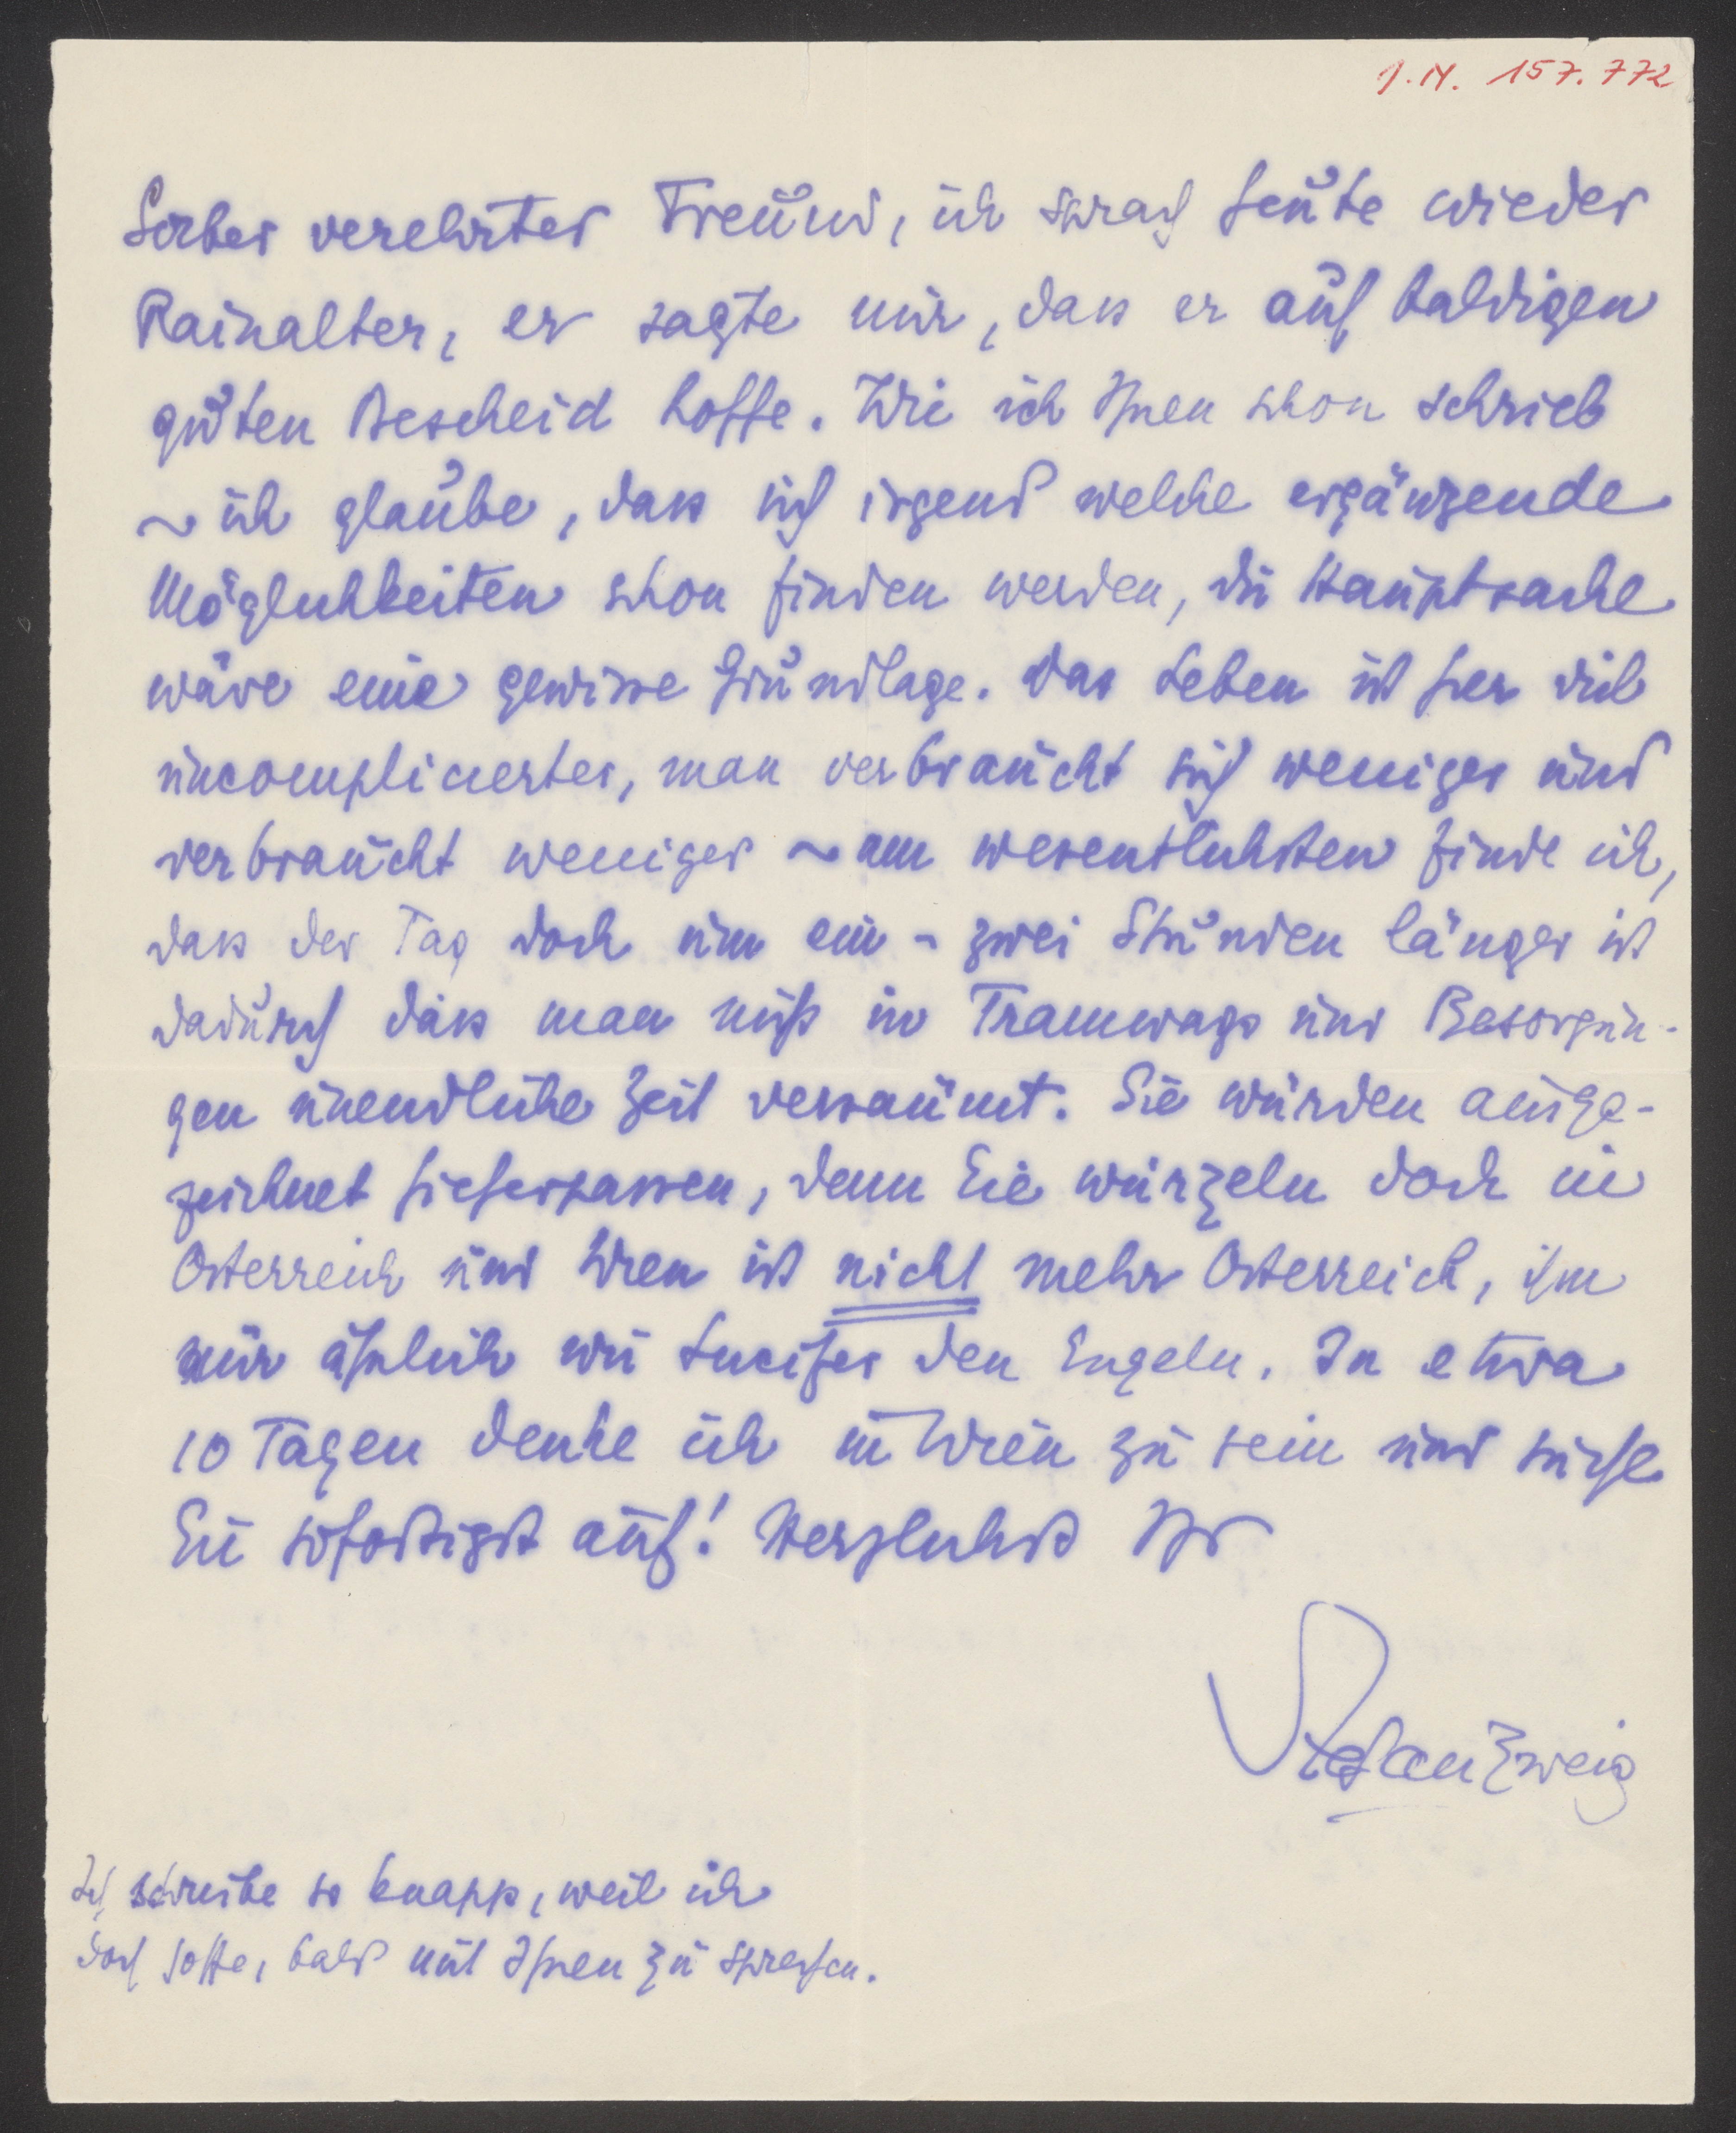 I.N. 157.772
Lieber verehrter Freund, ich sprach heute wieder
Rainalter, er sagte mir, dass er auf baldigen
guten Bescheid hoffe. Wie ich Ihnen schon schrieb
~ ich glaube, dass sich irgend welche ergänzende
Möglichkeiten schon finden werden, die Hauptsache
wäre eine gewisse Grundlage. Das Leben ist hier viel
uncomplicierter, man verbraucht sich weniger und
verbraucht weniger ~ am wesentlichsten finde ich,
dass der Tag doch um ein - zwei Stunden länger ist
dadurch dass man nicht in Tramways und Besorgun-
gen unendliche Zeit versäumt. Sie würden ausge-
zeichnet hieherpassen, denn Sie wurzeln doch in
Österreich und Wien ist nicht mehr Österreich, ihm
nur ähnlich wie Lucifer den Engeln. In etwa
10 Tagen denke ich in Wien zu sein und suche
Sie sofortigst auf! Herzlichst Ihr
Stefan Zweig
Ich schreibe so knapp, weil ich
doch hoffe, bald mit Ihnen zu sprechen.